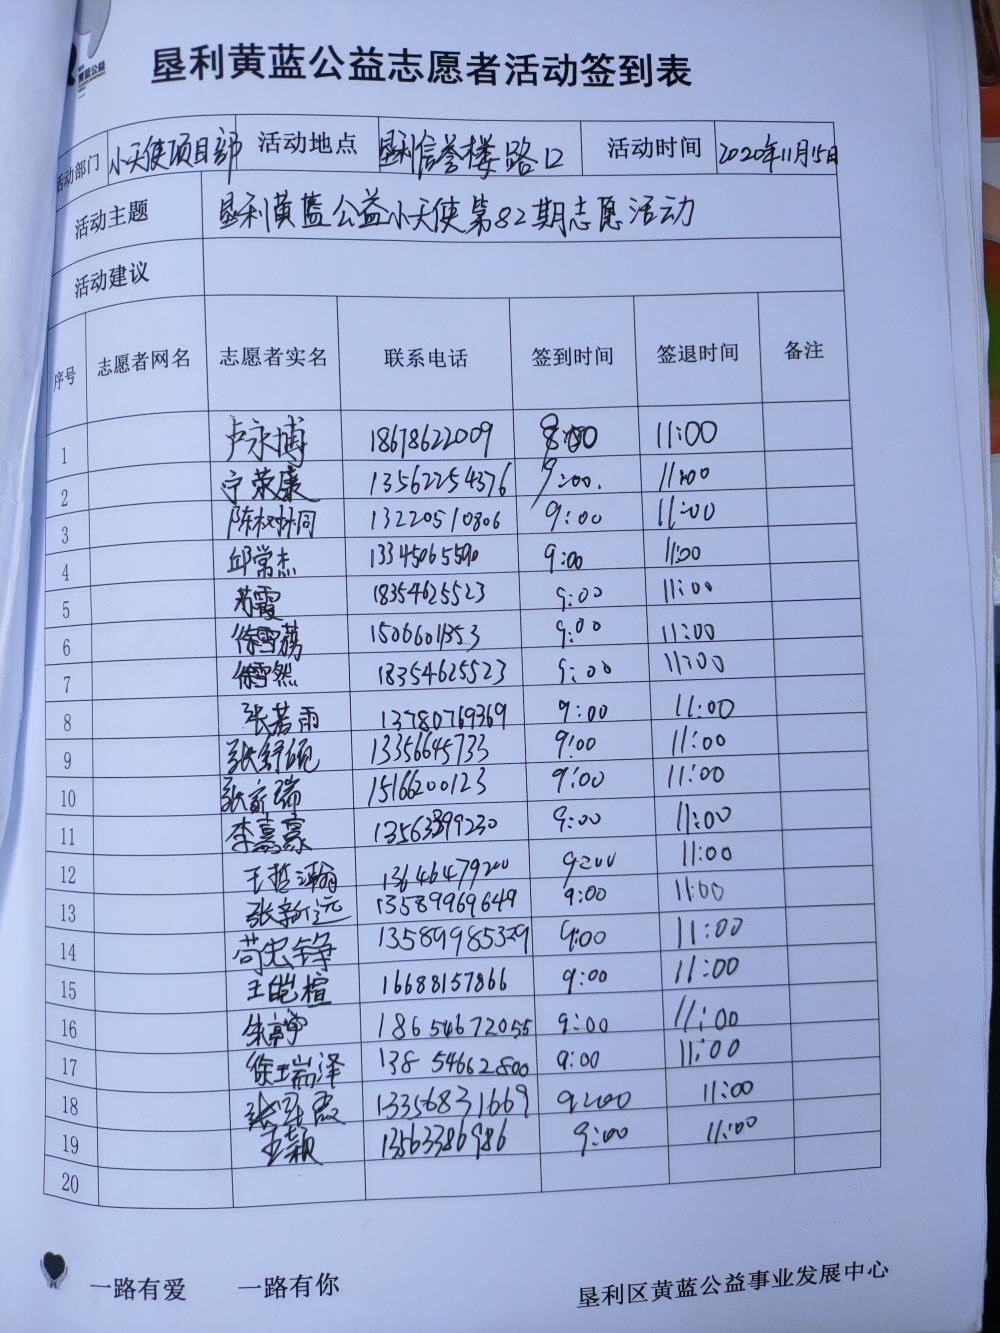 黄蓝公益
垦利黄蓝公益志愿者活动签到表
活动部门 小天使项目部 活动地点 垦利信誉楼路口 活动时间 2020年11月15日
活动主题 垦利黄蓝公益小天使第82期志愿活动
活动建议
序号 志愿者网名 志愿者实名 联系电话 签到时间 签退时间 备注
1 卢永博 18678622009 11:00
2 宁荣康 13562254376 9:00. 11:00
3 13220510806 9:00 11:00
4 邱常杰 13345065590 9:00 11:00
5 苏霞 18354625523 9:00 11:00
6 徐雪 9:00 11:00
7 徐雪然 18354625523 9:00 11:00
8 张若雨 13780769369 9:00 11:00
9 张舒砚 13356645733 9:00 11:00
10 张家瑞 15166200123 9:00 11:00
11 李嘉豪 9:00 11:00
12 王哲瀚 13646479200 9:00 11:00
13 张新远 13589969649 9:00 11:00
14 苟忠锋 9:00 11:00
15 王皑楦 16688157866 9:00 11:00
16 18654672055 9:00 11:00
17 徐瑞泽 13854662800 9:00 11:00
18 13356831669 9:00 11:00
19 王颖 13563386986 9:00 11:00
20
一路有爱 一路有你
垦利区黄蓝公益事业发展中心